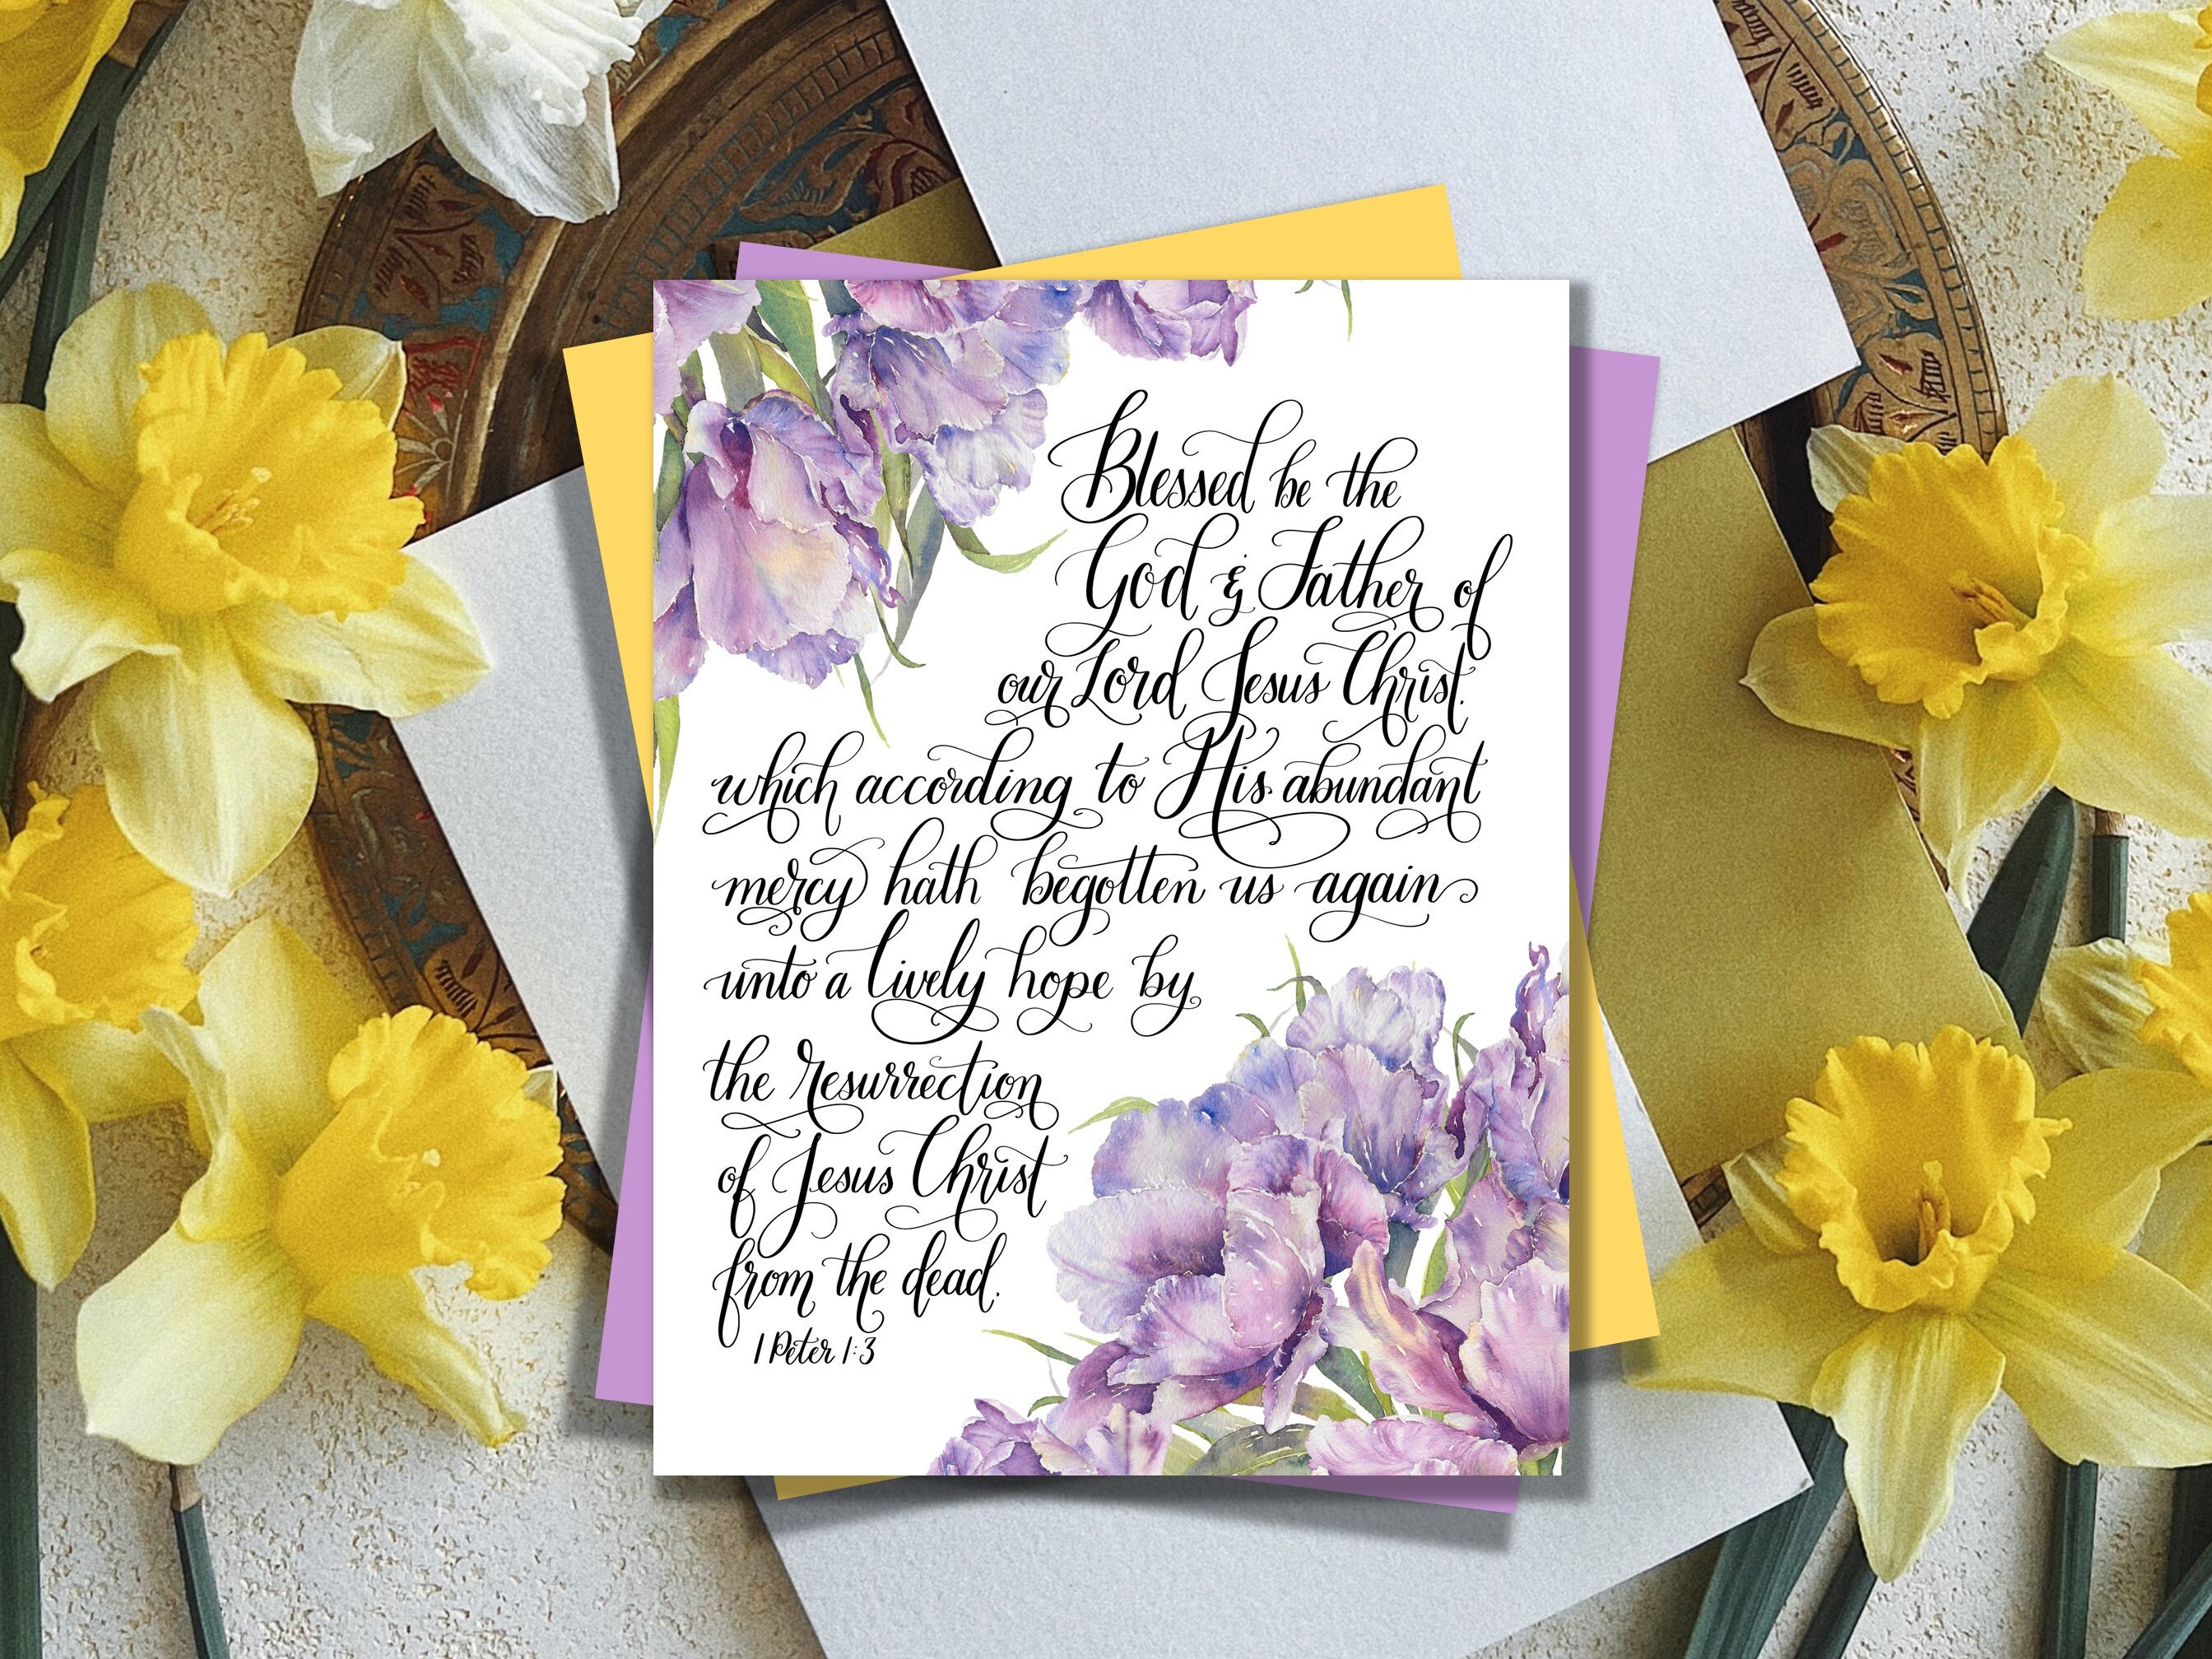 Blessed be the
God & Father of
our Lord Jesus Christ.
which according to His abundant
mercy hath begotten us again
unto a lively hope by
the resurrection
of Jesus Christ
from the dead.
1 Peter 1:3